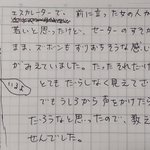 エスカレーターで、前に立った女の人が
若いと思ったけど、セーターのすそが
まま、スボンもずりおちそうな感じ
がみえていました。たったそれだけ
とてもだらしなく見えてざ
でもうしろから声をかけたら
だろうなと思ったので、教え
せんでした。